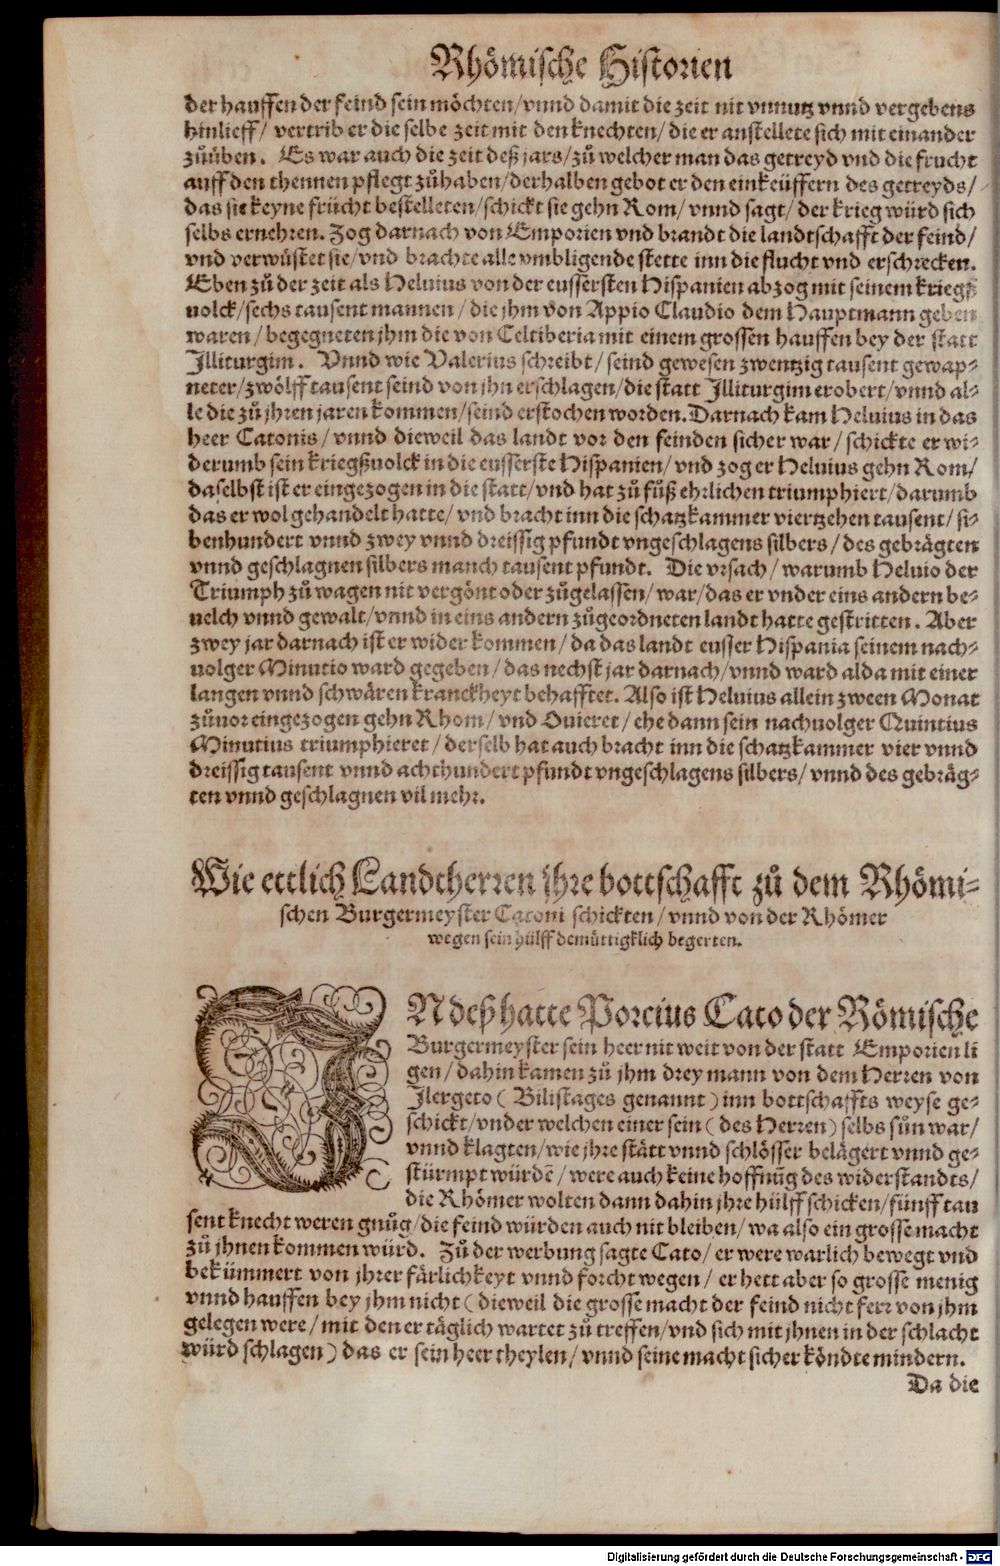 Rhömische Historien
der hauffen der feind sein möchten/vnnd damit die zeit nit vnnutz vnnd vergebens
hinlieff/ vertrib er die selbe zeit mit den knechten/ die er anstellete sich mit einander
zůüben. Es war auch die zeit deß jars/zů welcher man das getreyd vnd die frucht
auff den thennen pflegt zůhaben/derhalben gebot er den einkeüffern des getreyds/
das sie keyne frücht bestelleten/schickt sie gehn Rom/ vnnd sagt/ der krieg würd sich
selbs ernehren. Zog darnach von Emporien vnd brandt die landtschafft der feind/
vnd verwüstet sie/vnd brachte alle vmbligende stette inn die flucht vnd erschrecken.
Eben zů der zeit als Heluius von der eussersten Hispanien abzog mit seinem kriegß
uolck/sechs tausent mannen/ die jhm von Appio Claudio dem Hauptmann geben
waren/ begegneten jhm die von Celtiberia mit einem grossen hauffen bey der statt
Jlliturgim. Vnnd wie Valerius schreibt/ seind gewesen zwentzig tausent gewap-
neter/zwölff tausent seind von jhn erschlagen/die statt Jlliturgim erobert/vnnd al-
le die zů jhren jaren kommen/seind erstochen worden. Darnach kam Heluius in das
heer Catonis/ vnnd dieweil das landt vor den feinden sicher war/ schickte er wi-
derumb sein kriegßuolck in die eusserste Hispanien/ vnd zog er Heluius gehn Rom/
daselbst ist er eingezogen in die statt/vnd hat zů fůß ehrlichen triumphiert/darumb
das er wol gehandelt hatte/ vnd bracht inn die schatzkammer viertzehen tausent/ si-
benhundert vnnd zwey vnnd dreissig pfundt vngeschlagens silbers/ des gebrägten
vnnd geschlagnen silbers manch tausent pfundt. Die vrsach/ warumb Heluio der
Triumph zů wagen nit vergönt oder zůgelassen/ war/das er vnder eins andern be-
uelch vnnd gewalt/vnnd in eins andern zůgeordneten landt hatte gestritten. Aber
zwey jar darnach ist er wider kommen/ da das landt eusser Hispania seinem nach-
uolger Minutio ward gegeben/ das nechst jar darnach/vnnd ward alda mit einer
langen vnnd schwären kranckheyt behafftet. Also ist Heluius allein zween Monat
zůuor eingezogen gehn Rhom/ vnd Ouieret/ ehe dann sein nachuolger Quintius
Minutius triumphieret/ derselb hat auch bracht inn die schatzkammer vier vnnd
dreissig tausent vnnd achthundert pfundt vngeschlagens silbers/ vnnd des gebräg-
ten vnnd geschlagnen vil mehr.
Wie ettlich Landtherren jhre bottschafft zů dem Rhömi-
schen Burgermeyster Catoni schickten/ vnnd von der Rhömer
wegen sein hülff demüttigklich begerten.
JN deß hatte Porcius Cato der Römische
Burgermeyster sein heer nit weit von der statt Emporien li
gen/ dahin kamen zů jhm drey mann von dem Herren von
Jlergeto (Bilistages genannt) inn bottschaffts weyse ge-
schickt/vnder welchen einer sein (des Herren) selbs sůn war/
vnnd klagten/wie jhre stätt vnnd schlösser belägert vnnd ge-
stürmpt würdē/ were auch keine hoffnūg des widerstandts/
die Rhömer wolten dann dahin jhre hülff schicken/fünff tau
sent knecht weren gnůg/die feind würden auch nit bleiben/ wa also ein grosse macht
zů jhnen kommen würd. Zů der werbung sagte Cato/ er were warlich bewegt vnd
bekümmert von jhrer färlichkeyt vnnd forcht wegen/ er hett aber so grosse menig
vnnd hauffen bey jhm nicht (dieweil die grosse macht der feind nicht ferr von jhm
gelegen were/ mit den er täglich wartet zů treffen/vnd sich mit jhnen in der schlacht
würd schlagen) das er sein heer theylen/ vnnd seine macht sicher köndte mindern.
Da die
Digitalisierung gefördert durch die Deutsche Forschungsgemeinschaft - DFG